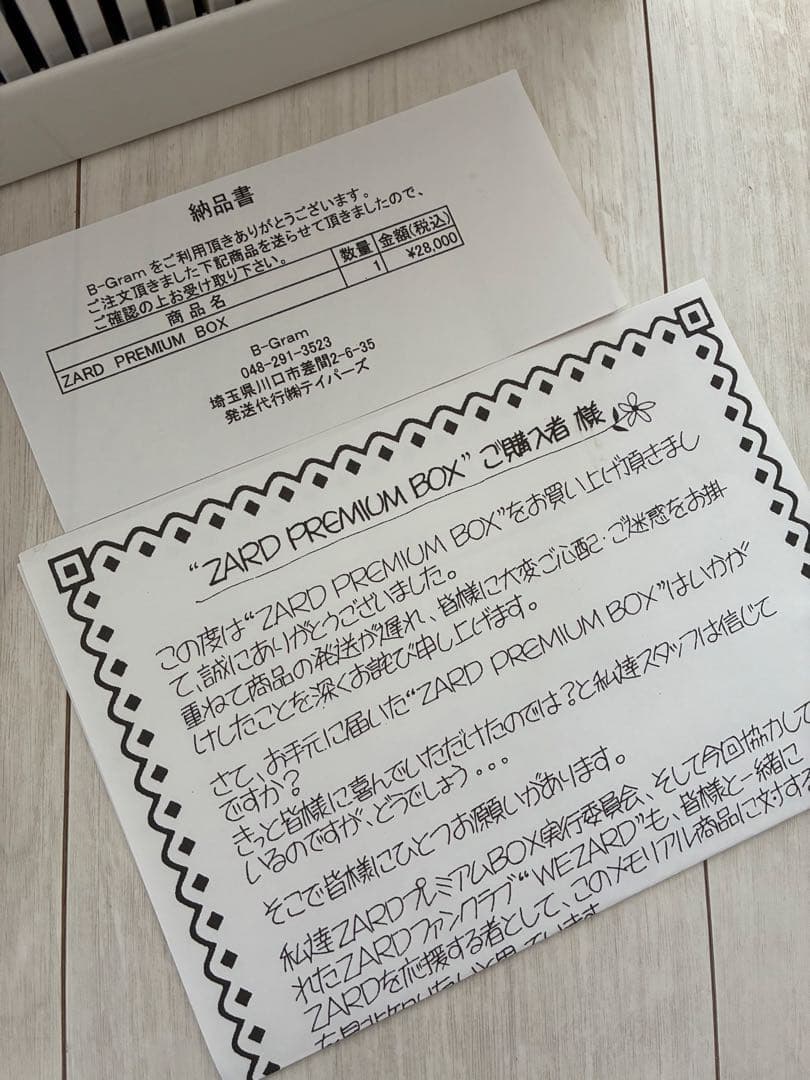 納品書
B-Gram をご利用頂きありがとうございます。
ご注文頂きました下記商品を送らせて頂きましたので、
ご確認の上お受け取り下さい。
商品名 数量 金額(税込)
ZARD PREMIUM BOX 1 ¥28,000
B-Gram
048-291-3523
埼玉県川口市差間2-6-35
発送代行㈱テイパーズ
“ZARD PREMIUM BOX” ご購入者 様
この度は“ZARD PREMIUM BOX”をお買い上げ頂きまし
て、誠にありがとうございました。
重ねて商品の発送が遅れ、皆様に大変ご心配・ご迷惑をお掛
けしたことを深くお詫び申し上げます。
さて、お手元に届いた“ZARD PREMIUM BOX”はいかが
ですか?
きっと皆様に喜んでいただけたのでは?と私達スタッフは信じて
いるのですが、どうでしょう・・・
そこで皆様にひとつお願いがあります。
私達ZARDプレミアムBOX実行委員会、そして今回協力して
れたZARDファンクラブ“WEZARD”も、皆様と一緒に
ZARDを応援する者として、このメモリアル商品に対する